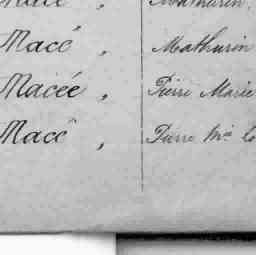 Macé " Mathurin
Macé " Mathurin
Macée " Pierre Marie
Macé " Pierre Mie